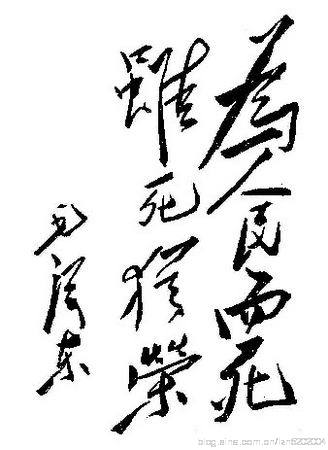 為人民而死
雖死猶榮
毛澤东
blog.sina.com.cn/lsn5202004